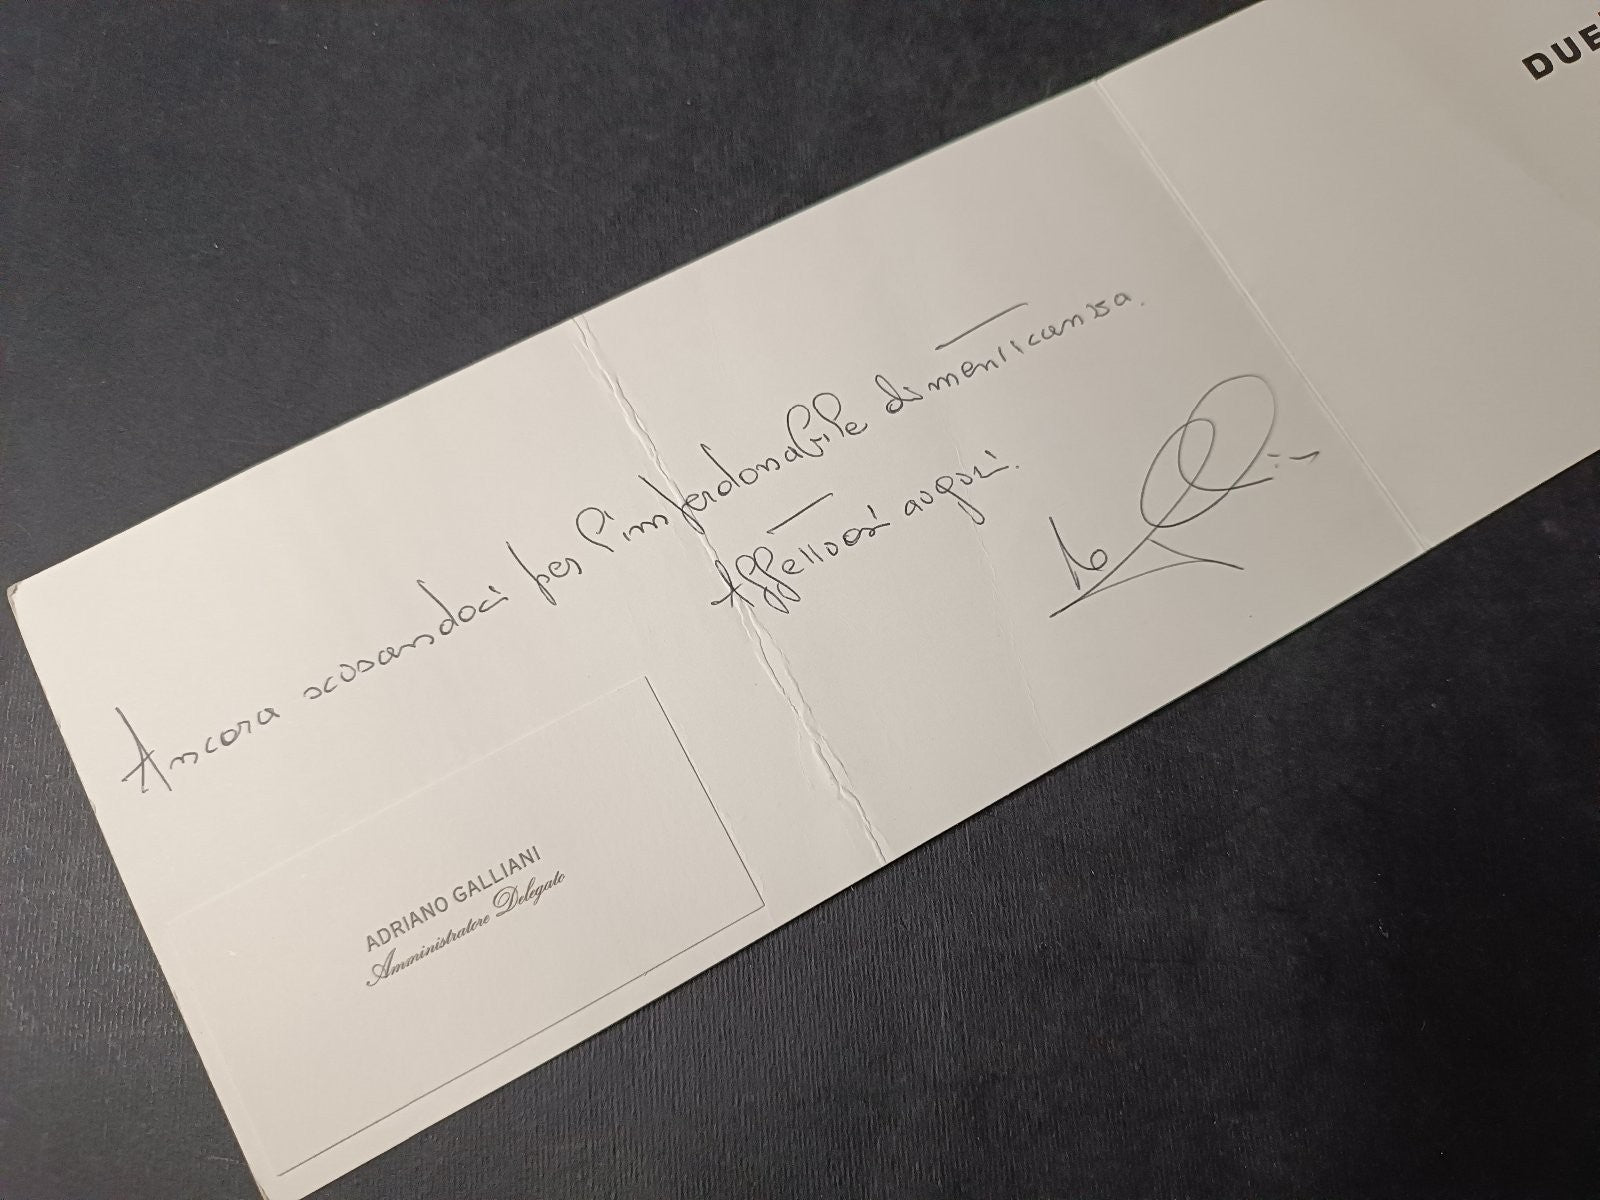 DUE
Ancora scusandoci per l'imperdonabile dimenticanza.
Affettuosi auguri.
ADRIANO GALLIANI
Amministratore Delegato